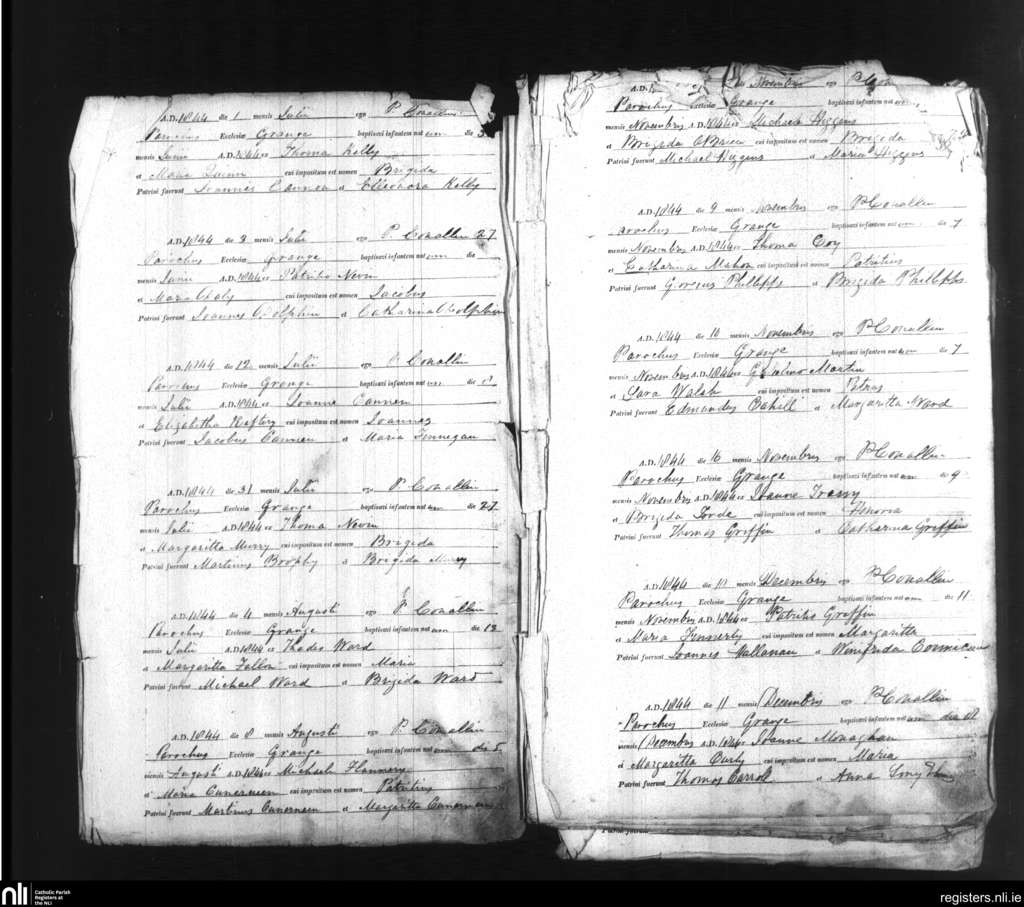 A.D. 1844 die 1 mensis Julii ego P. Conallin
Parochus Ecclesiæ Grange baptizavi infantem natum die 3
mensis Junii A.D. 1844 ex Thoma Kelly
et Maria cui impositum est nomen Brigida
Patrini fuerunt Joannes Cannon et Eleonora Kelly
A.D. 1844 die 3 mensis Julii ego P. Conallin 27
Parochus Ecclesiæ Grange baptizavi infantem natum die
mensis Junii A.D. 1844 ex Patritio Nevin
et Maria Healy cui impositum est nomen Jacobus
Patrini fuerunt Joannes et Catharina
A.D. 1844 die 12 mensis Julii ego P. Conallin
Parochus Ecclesiæ Grange baptizavi infantem natum die 8
mensis Julii A.D. 1844 ex Joanne Cannon
et Elizabetha Raftery cui impositum est nomen Joannes
Patrini fuerunt Jacobus Cannon et Maria Finnegan
A.D. 1844 die 31 mensis Julii ego P. Conallin
Parochus Ecclesiæ Grange baptizavi infantem natam die 27
mensis Julii A.D. 1844 ex Thoma Nevin
et Margaritta Murry cui impositum est nomen Brigida
Patrini fuerunt Martinus Brophy et Brigida Murry
A.D. 1844 die 4 mensis Augusti ego P. Conallin
Parochus Ecclesiæ Grange baptizavi infantem natam die 12
mensis Julii A.D. 1844 ex Thadeo Ward
et Margaritta Fallon cui impositum est nomen Maria
Patrini fuerunt Michael Ward et Brigida Ward
A.D. 1844 die 8 mensis Augusti ego P. Conallin
Parochus Ecclesiæ Grange baptizavi infantem natum die 5
mensis Augusti A.D. 1844 ex Michaele Flannery
et Maria Cunerneen cui impositum est nomen Patritius
Patrini fuerunt Martinus Cunerneen et Margaritta Cunerneen
A.D. Novembris ego P
Parochus Ecclesiæ Grange baptizavi infantem
mensis Novembris A.D. 1844 ex Michaele Higgins
et Brigida OBrien cui impositum est nomen Brigida
Patrini fuerunt Michael Higgins et Maria Higgins
A.D. 1844 die 9 mensis Novembris ego P Conallin
arochus Ecclesiæ Grange baptizavi infantem natum die 7
mensis Novembris A.D. 1844 ex Thoma Coy
et Catharina Mahon cui impositum est nomen Patritius
Patrini fuerunt Georgius Phillipps et Brigida Phillipps
A.D. 1844 die 10 mensis Novembris ego P Conallin
Parochus Ecclesiæ Grange baptizavi infantem natum die 7
mensis Novembris A.D. 1844 ex Martin
et Sara Walsh cui impositum est nomen Petrus
Patrini fuerunt Edmundus Cahill et Margaritta Ward
A.D. 1844 die 16 mensis Novembris ego P Conallin
Parochus Ecclesiæ Grange baptizavi infantem natam die 9
mensis Novembris A.D. 1844 ex Joanne Tracy
et Brigida Forde cui impositum est nomen Honoria
Patrini fuerunt Thomas Griffin et Catharina Griffin
A.D. 1844 die 10 mensis Decembris ego P Conallin
Parochus Ecclesiæ Grange baptizavi infantem natam die 11
mensis Novembris A.D. 1844 ex Patritio Griffin
et Maria Finnerty cui impositum est nomen Margaritta
Patrini fuerunt Joannes Hallanan et Winifrida Cormican
A.D. 1844 die 11 mensis Decembris ego P Conallin
Parochus Ecclesiæ Grange baptizavi infantem natam die 08
mensis Decembris A.D. 1844 ex Joanne Monaghan
et Margaritta Curly cui impositum est nomen Maria
Patrini fuerunt Thomas Carroll et Anna
Patrini fuerunt
nli Catholic Parish
Registers at
the NLI
registers.nli.ie